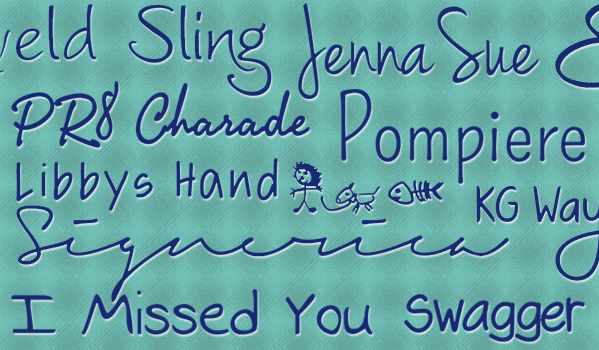 eld Sling Jenna Sue
PR8 Charade Pompiere
Libbys Hand KG Way
Signerica
I Missed You Swagger